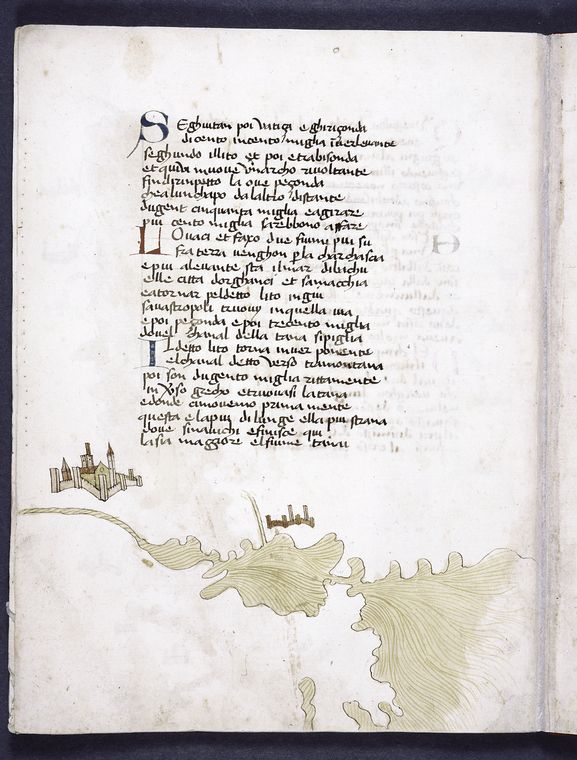 Seghuitan poi vatiça e ghiriçonda
di cento in cento miglia inverlevante
seghuendo illito et poi etrabisonda
et quivi muove un archo rivoltante
fin dirinpetto la ove peçonda
che alunchapo da laltro distante
dugent cinquanta miglia e agirare
piu cento miglia sarebbono affare
Lovaci et faxo due fiumi piu su
fra terra venghon per la charchascia
e piu alevante sta il mar di bachu
elle citta dorghanci et sanacchia
e a tornar pel detto lito ingiu
savastropoli truovi in quella via
e poi peçonda e poi trecento miglia
dove chanal della tana si piglia
Il detto lito torna inver ponente
el chanal detto verso tramontana
poi son dugento miglia rittamente
in verso grecho et ruovasi la tana
e donde ci movemo prima mente
questa e la piu di lunge ella piu strana
dove finavichi e finisce qui
lasia maggiore el fiume tanai